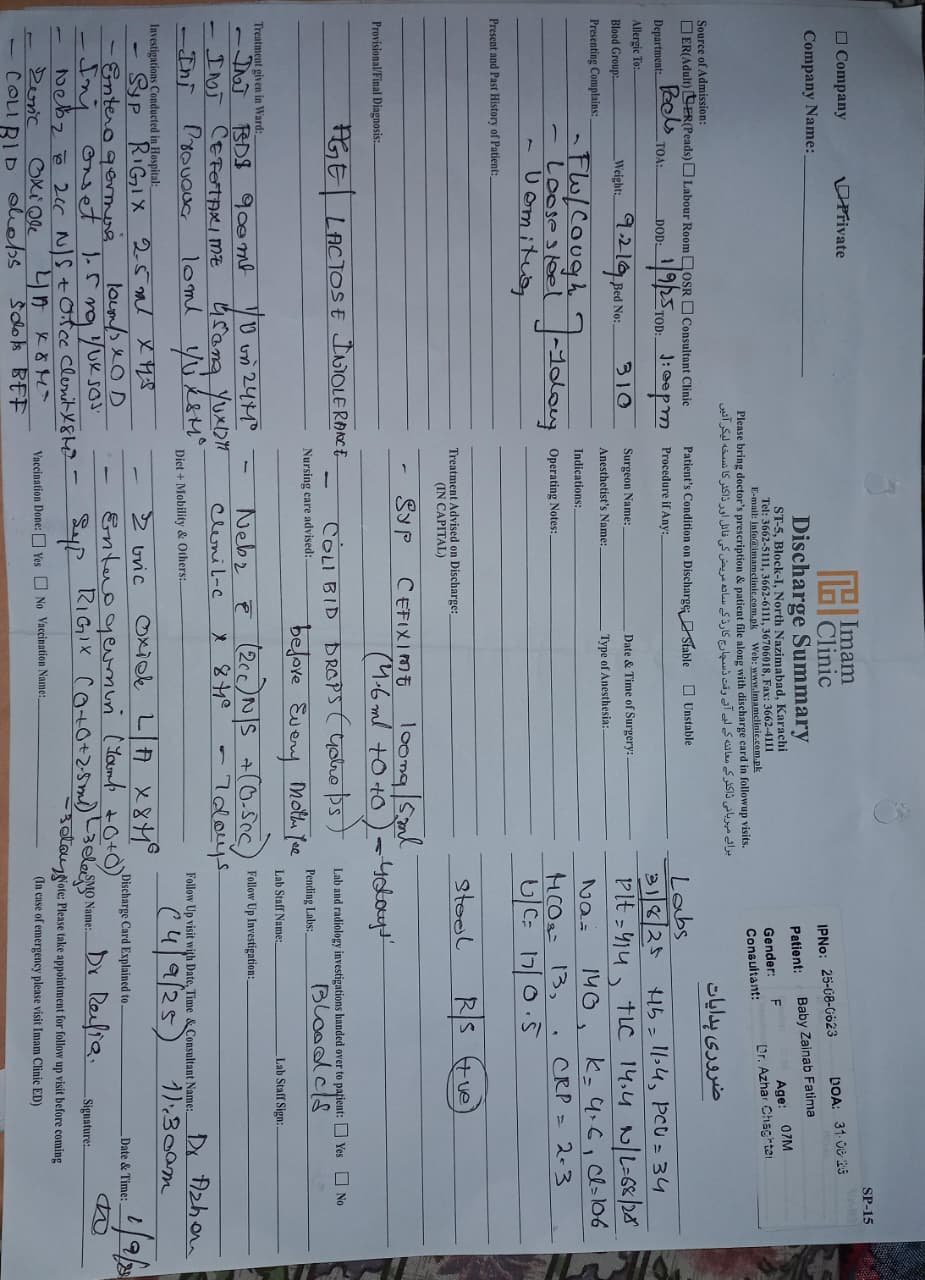 SP-15
Imam Clinic
Discharge Summary
ST-5, Block-I, North Nazimabad, Karachi
Tel: 3662-5111, 3662-6111, 36706018, Fax: 3662-4111
E-mail: info@imamclinic.com.pk Web: www.imamclinic.com.pk
Please bring doctor's prescription & patient file along with discharge card in followup visits.
☐ Company Private
Company Name:
IPNo: 25-08-0623 DOA: 31-08-25
Patient: Baby Zainab Fatima
Gender: F Age: 07M
Consultant: Dr. Azhar Chaghtai
ضروری ہدایات
Source of Admission:
☐ ER(Adult) ER(Peads) ☐ Labour Room ☐ OSR ☐ Consultant Clinic
Department: Peds TOA: DOD: 1/9/25 TOD: 1:00pm
Allergic To:
Blood Group: Weight: 9.2kg Bed No: 310
Presenting Complains:
- Loose stool
- Vomiting
Present and Past History of Patient:
Provisional/Final Diagnosis:
AGE / LACTOSE INTOLERANCE
Treatment given in Ward:
- INJ CEFOTAXIME
- Inj Provas 10ml
Investigations Conducted in Hospital:
- Syp RIGIX 2.5ml x HS
- Enterogermina x OD
- Inj onset 1.5mg SOS
- Zinc oxide L/A x 8H°
- COLIBID drops 5drops BFF
Patient's Condition on Discharge: Stable ☐ Unstable
Procedure if Any:
Surgeon Name: Date & Time of Surgery:
Anesthetist's Name: Type of Anesthesia:
Indications:
Operating Notes:
Treatment Advised on Discharge:
(IN CAPITAL)
- Syp CEFIXIME 100mg/5ml
(4.6ml +0+0) - 4days
- COLIBID DROPS
Nursing care advised:
before Every
- Nebz c̄ (2cc) N/S + (0.5cc)
Clenil-c x 8H° - 7days
Diet + Mobility & Others:
- Zinc oxide L/A x 8H°
- Enterogermina
- Syp RIGIX (0+0+2.5ml) - 3days
Vaccination Done: ☐ Yes ☐ No Vaccination Name:
Labs
31/8/25 Hb = 11.4, PCV = 34
Plt = 414, TLC 14.4 N/L = 68/28
Na = 140, K = 4.6, Cl = 106
HCO3 = 13, CRP = 2.3
U/C = 17/0.5
Stool R/S +ve
Lab and radiology investigations handed over to patient: ☐ Yes ☐ No
Pending Labs: Blood c/s
Lab Staff Name: Lab Staff Sign:
Follow Up Investigation:
Follow Up visit with Date, Time & Consultant Name: Dr Azhar
(4/9/25) 11:30am
Discharge Card Explained to Date & Time: 1/9/25
SMO Name: Dr Signature:
Note: Please take appointment for follow up visit before coming
(In case of emergency please visit Imam Clinic ED)